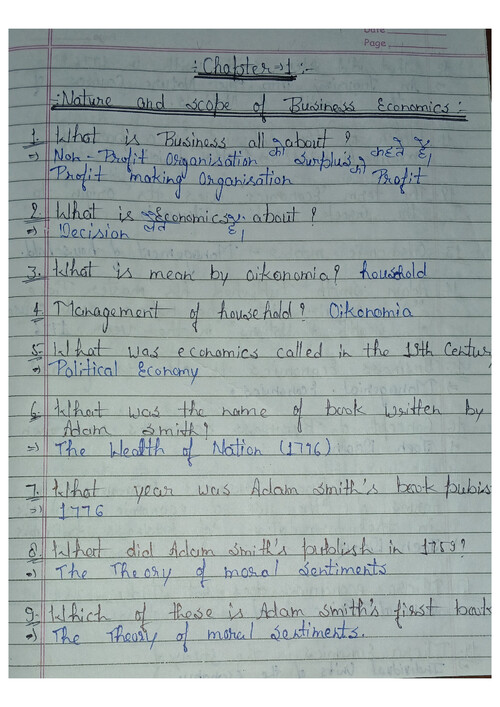 Date
Page
:Chapter→1:-
:Nature and scope of Business Economics:
1. What is Business all about?
⇒ Non-Profit Organisation को surplus कहते है।
Profit making Organisation को Profit
2. What is Economics about?
⇒ Decision लेते है।
3. What is mean by oikonomia? household
4. Management of household? Oikonomia
5. What was economics called in the 19th Century
⇒ Political Economy
6. What was the name of book written by
Adam smith?
⇒ The Wealth of Nation (1776)
7. What year was Adam smith's book pubis
⇒ 1776
8. What did Adam smith's publish in 1759?
⇒ The Theory of moral sentiments
9. Which of these is Adam smith's first book
⇒ The Theory of moral sentiments.